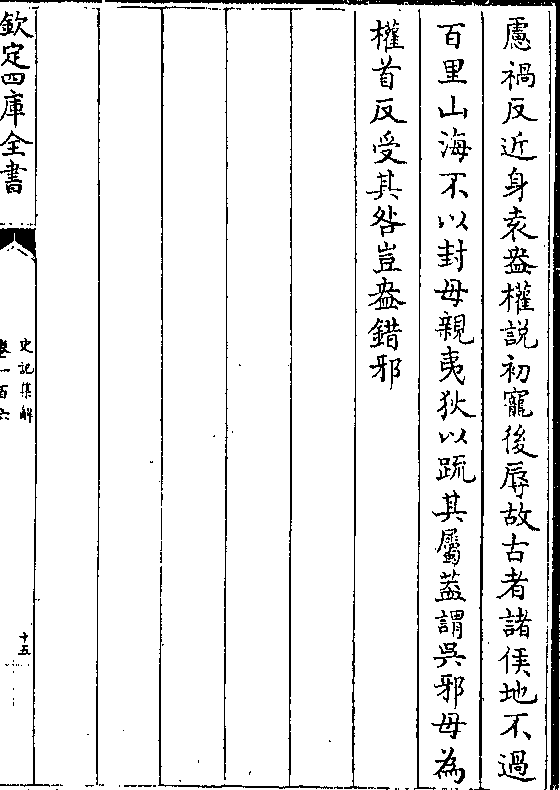 慮禍反近身袁盎權說初寵後辱故古者諸侯地不過
百里山海不以封毋親夷狄以䟽其屬葢謂吳邪毋為
權首反受其咎豈盎錯邪
欽定四庫全書
史記集解
卷一百六
十五